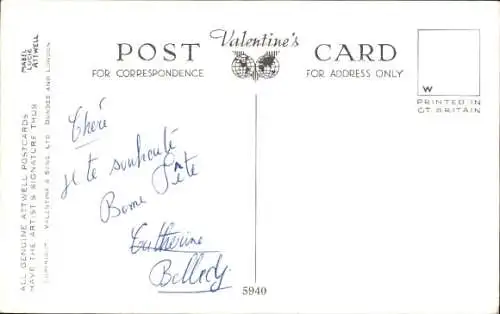 POST Valentine's CARD
FOR CORRESPONDENCE FOR ADDRESS ONLY
W
PRINTED IN
GT. BRITAIN
MABEL
LUCIE
ATTWELL
ALL GENUINE ATTWELL POSTCARDS
HAVE THE ARTIST'S SIGNATURE THUS
COPYRIGHT. VALENTINE & SONS, LTD. DUNDEE AND LONDON
je te
Bonne Fête
Catherine
5940